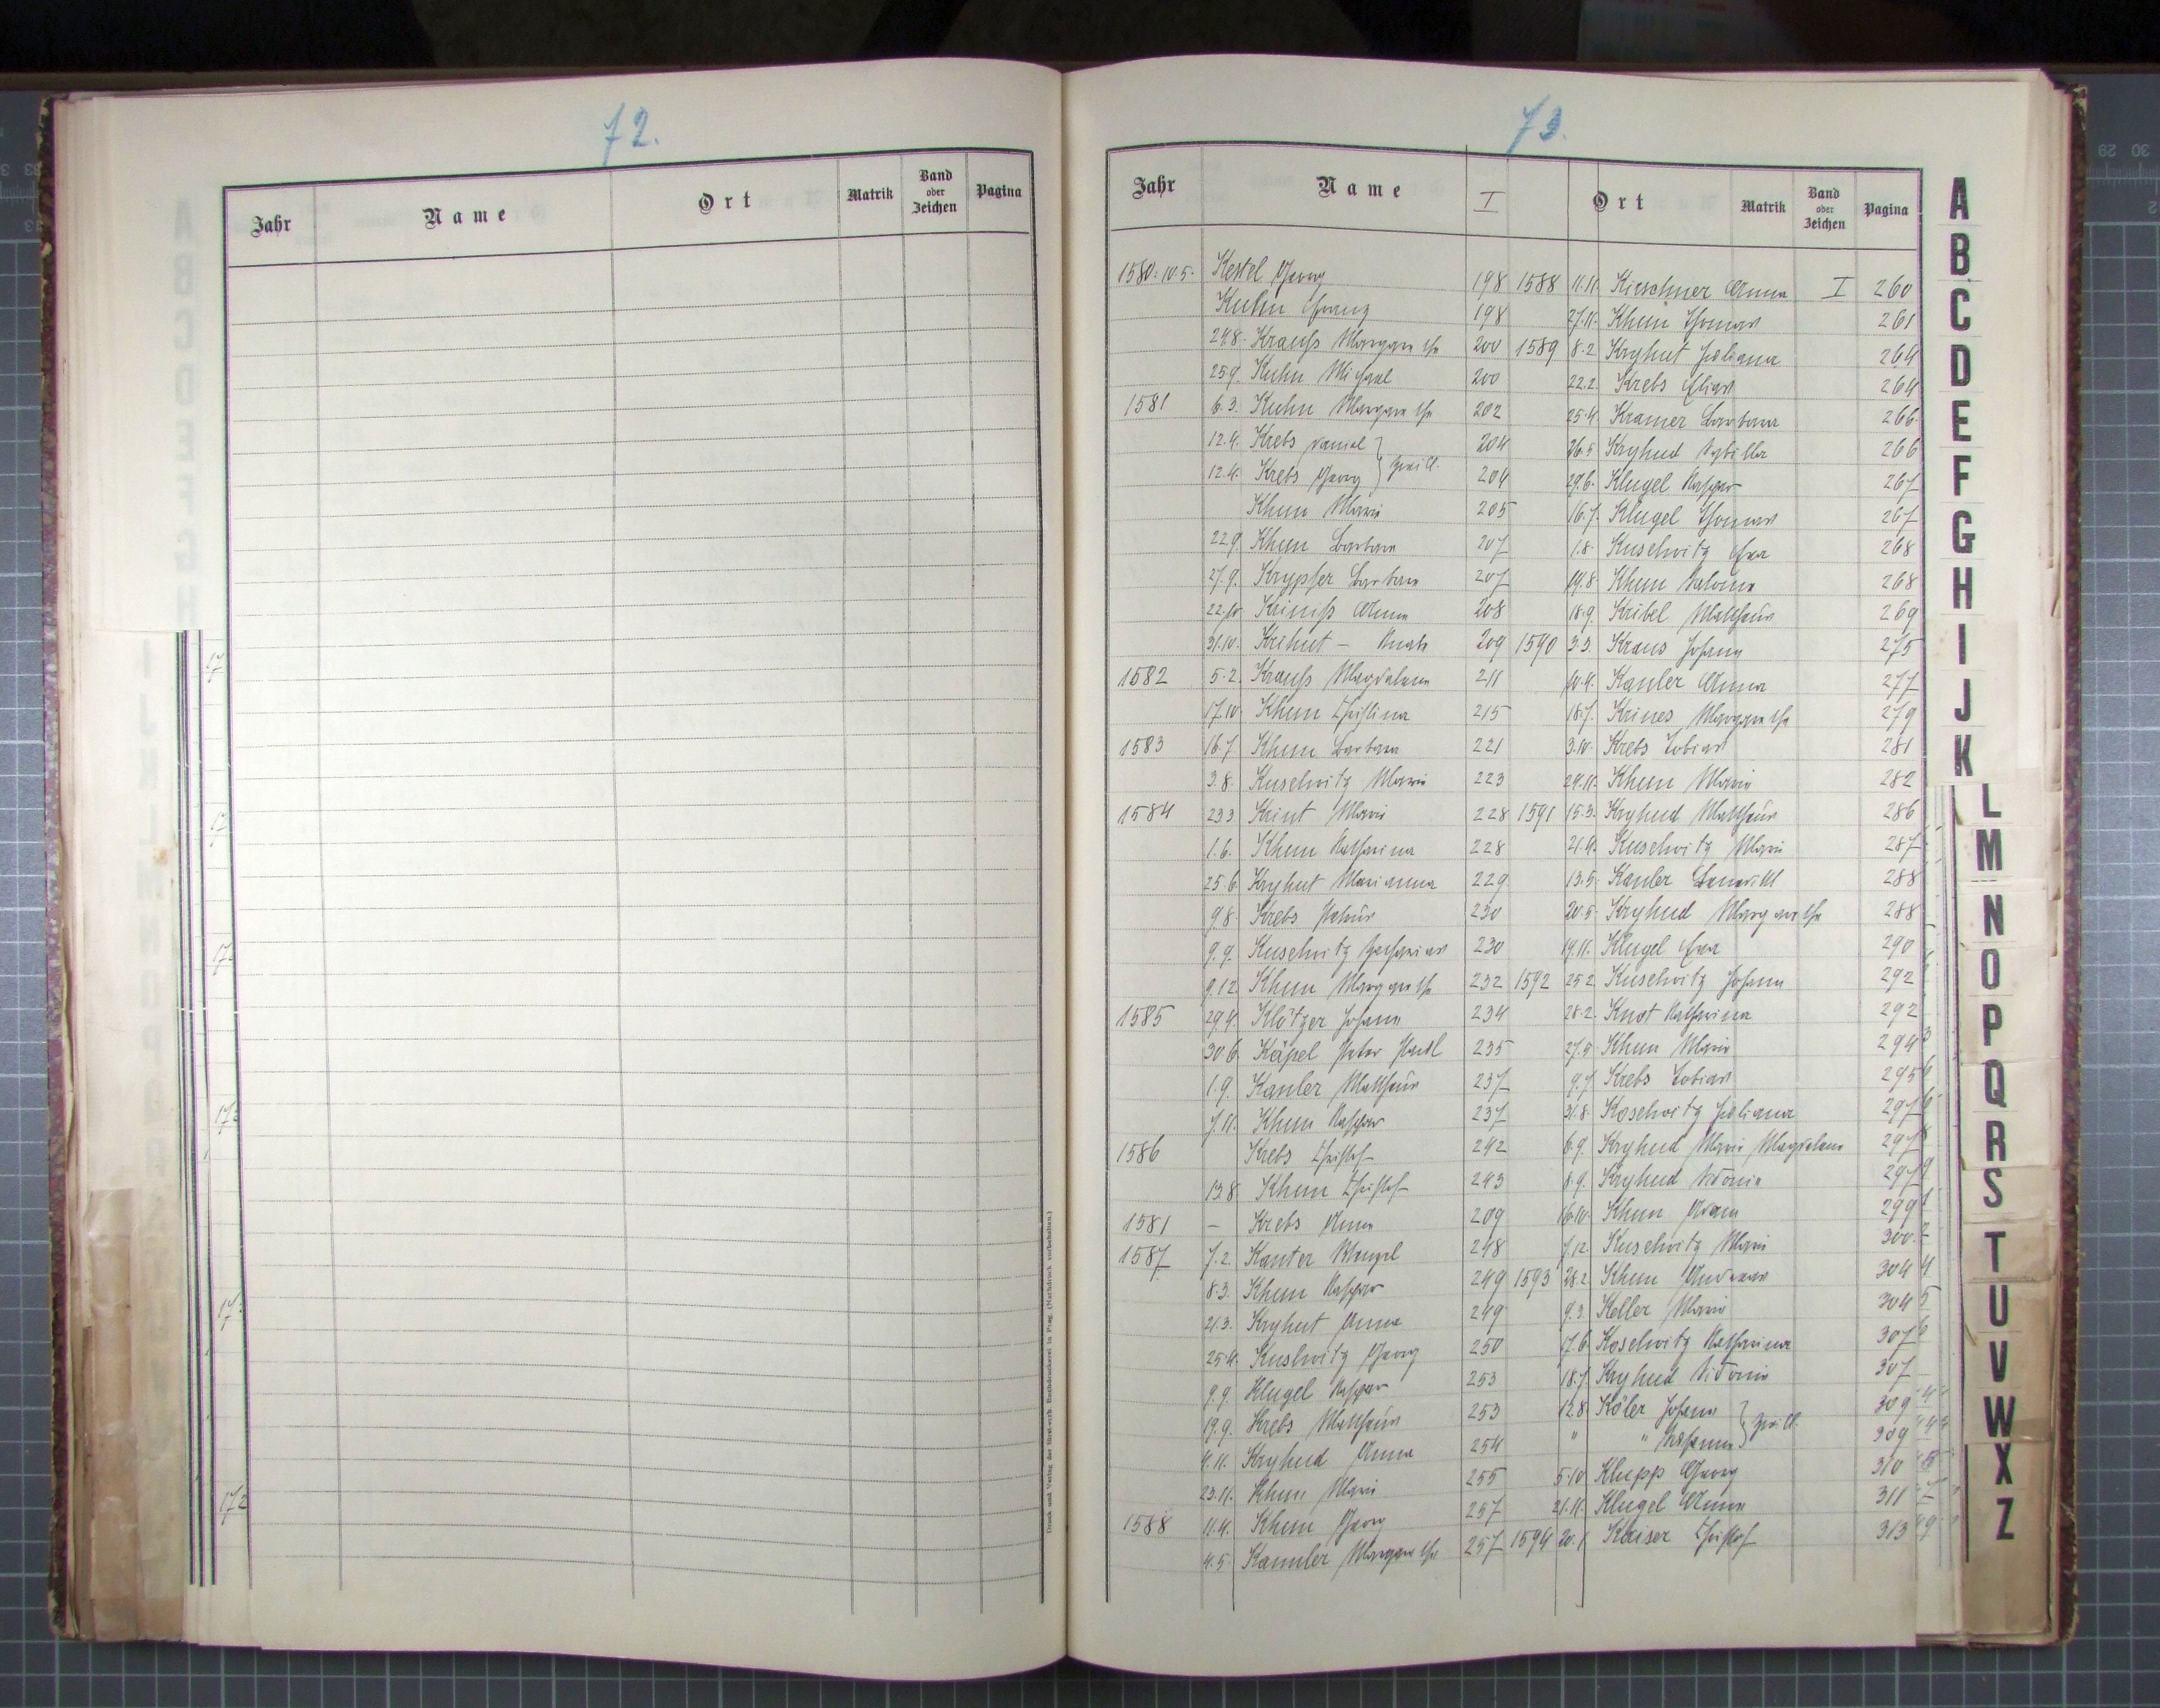 72.
Jahr Name Ort Matrik Band oder Zeichen Pagina
73.
Jahr Name I Ort Matrik Band oder Zeichen Pagina
1580. 10.5. Kestel Georg 198
Kuhn Franz 198
24.8. Krauß Margarethe 200
25.9. Kuhn Michael 200
1581 6.3. Kuhn Margarethe 202
12.4. Krebs Daniel } 204
12.4. Krebs Georg } Zwill. 204
Khun Marie 205
22.9. Khun Barbara 207
27.9. Krypfer Barbara 207
22.10. Kriniß Anna 208
31.10. Krihut – Knabe 209
1582 5.2. Krauß Magdalena 211
17.10. Khun Christina 215
1583 16.7. Khun Barbara 221
3.8. Kuschwitz Marie 223
1584 23.3 Krint Marie 228
1.6. Khun Katharina 228
25.6 Kryhut Marianna 229
9.8. Krebs 230
9.9. Kuschwitz Zacharias 230
9.12. Khun Margarethe 232
1585 29.4. Klötzer Johann 234
30.6 Käpel Peter Paul 235
1.9. Kanler Matthäus 237
7.11. Khun Kaspar 237
1586 Krebs Christof 242
13.8. Khun Christof 243
1581 – Krebs Anna 209
1587 7.2. Kanter Wenzel 248
8.3. Khun Kaspar 249
21.3. Kryhut Anna 249
25.4. Kushwitz Georg 250
9.9. Klugel Kaspar 253
19.9. Krebs Matthäus 253
4.11. Kryhud Anna 254
23.11. Khun Marie 255
1588 11.4. Khun Georg 257
4.5. Kannler Margarethe 257
1588 11.11. Kirschner Anna I 260
27.11. Khun Thomas 261
1589 8.2. Kryhut Juliana 264
22.2. Krebs Elias 264
25.4. Kramer Barbara 266
26.5 Kryhud Sybilla 266
29.6. Klugel Kaspar 267
16.7. Klugel Thomas 267
1.8. Kuschwitz Eva 268
19.8. Khun 268
18.9. Kribel Matthäus 269
1590 3.3. Kraus Johann 275
10.4. Kanler Anna 277
18.7. Krines Margarethe 279
3.10. Krebs Tobias 281
24.11. Khun Marie 282
1591 15.3. Kryhud Matthäus 286
21.4. Kuschwitz Marie 287
13.5. Kanler Benedikt 288
20.5. Kryhud Margarethe 288
19.11. Klugel Eva 290
1592 25.2. Kuschwitz Johann 292
28.2. Knot Katharina 292
27.5. Khun Marie 294
9.7. Krebs Tobias 295
31.8. Koschwitz Juliana 297
6.9. Kryhud Marie Magdalena 297
8.9. Kryhud Sidonia 297
16.10. Khun Adam 299
7.12. Kuschwitz Marie 300
1593 28.2. Khun Andreas 304
9.3. Keller Marie 304
17.6. Koschwitz Katharina 307
18.7. Kryhud Sidonie 307
12.8. Köler Johann } 309
" " Susanna } Zwill. 309
5.10 Klupp Georg 310
21.11. Klugel Anna 311
1594 20.1 Kaiser Christof 313
A
B
C
D
E
F
G
H
I
J
K
L
M
N
O
P
Q
R
S
T
U
V
W
X
Z